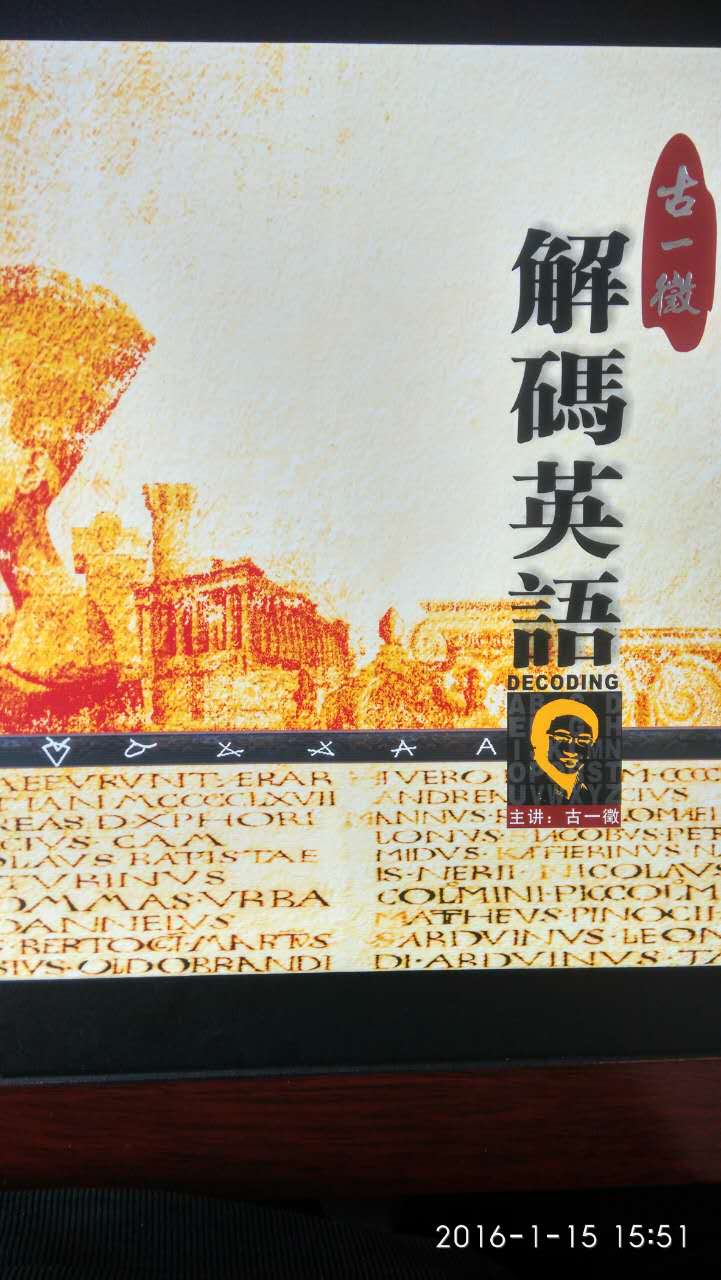 古一徵
解碼英語
DECODING
主讲：古一徵
TIAN·MCCCCLXVII
REAS·DXPHORI
CIVS·CAM
SLAVS·BAPTISTAE
TVRINVS
OMMAS·VRBA
OANNELVS
BERTOCI·MARTVS
SIVS·OLDOBRANDI
IVERO
ANDREN
LONVS·IACOBVS·PET
MIDVS·KATHERINVS·N
IS·NERII·NICOLAVS
COLMINI·PICCOLM
MATTHEVS·PINOCII
SARDVINVS·LEON
DI·ARDVINVS·
2016-1-15 15:51